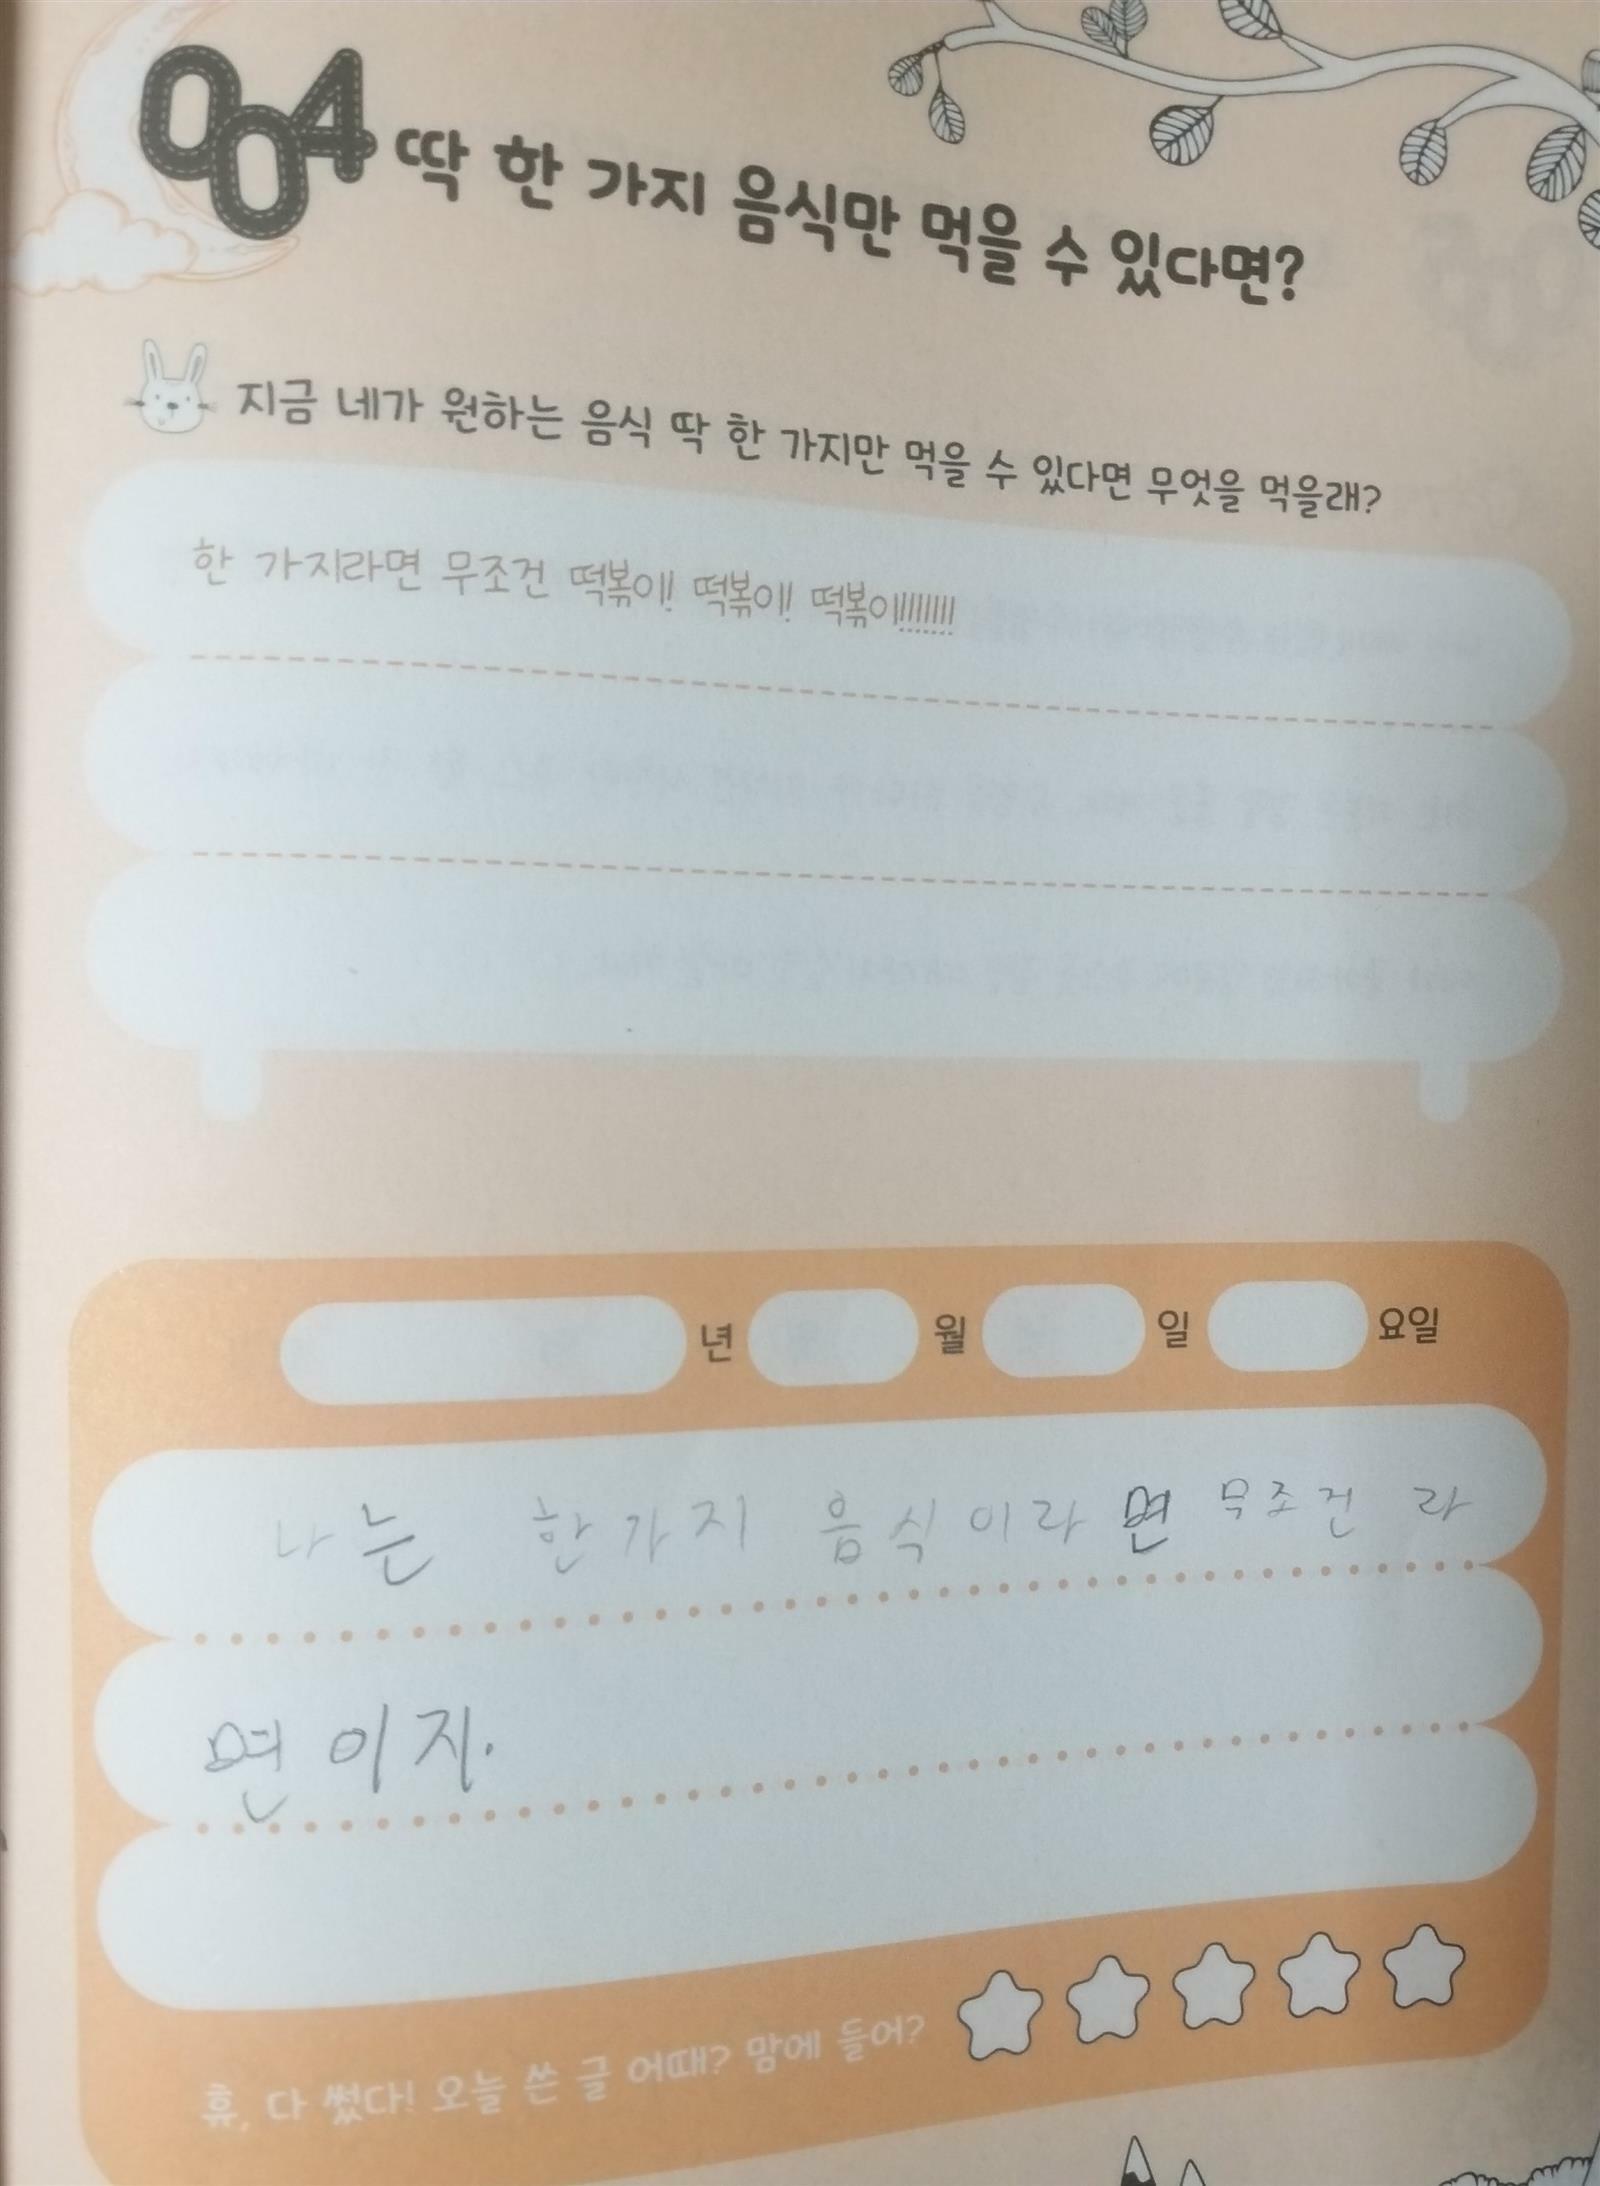 004 딱 한 가지 음식만 먹을 수 있다면?
지금 네가 원하는 음식 딱 한 가지만 먹을 수 있다면 무엇을 먹을래?
한 가지라면 무조건 떡볶이! 떡볶이! 떡볶이!!!!!!!!
년 월 일 요일
나는 한가지 음식이라면 무조건 라
면이지.
휴, 다 썼다! 오늘 쓴 글 어때? 맘에 들어?